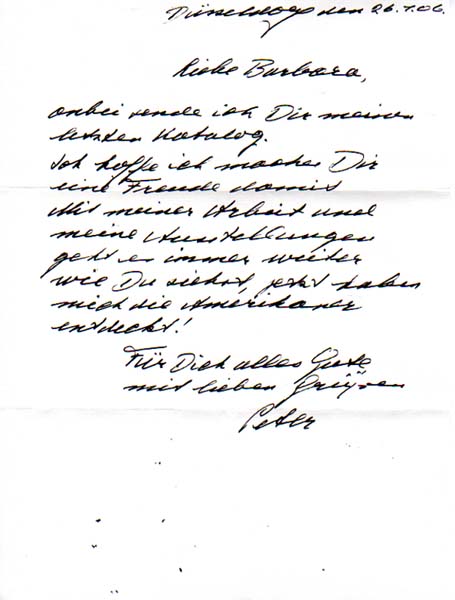 Düsseldorf den 26.1.06.
Liebe Barbara,
anbei sende ich Dir meinen
letzten Katalog.
Ich hoffe ich mache Dir
eine Freude damit
Mit meiner Arbeit und
meine Ausstellungen
geht es immer weiter
wie Du siehst, jetzt haben
mich die Amerikaner
entdeckt!
Für Dich alles Gute
mit lieben Grüßen
Peter